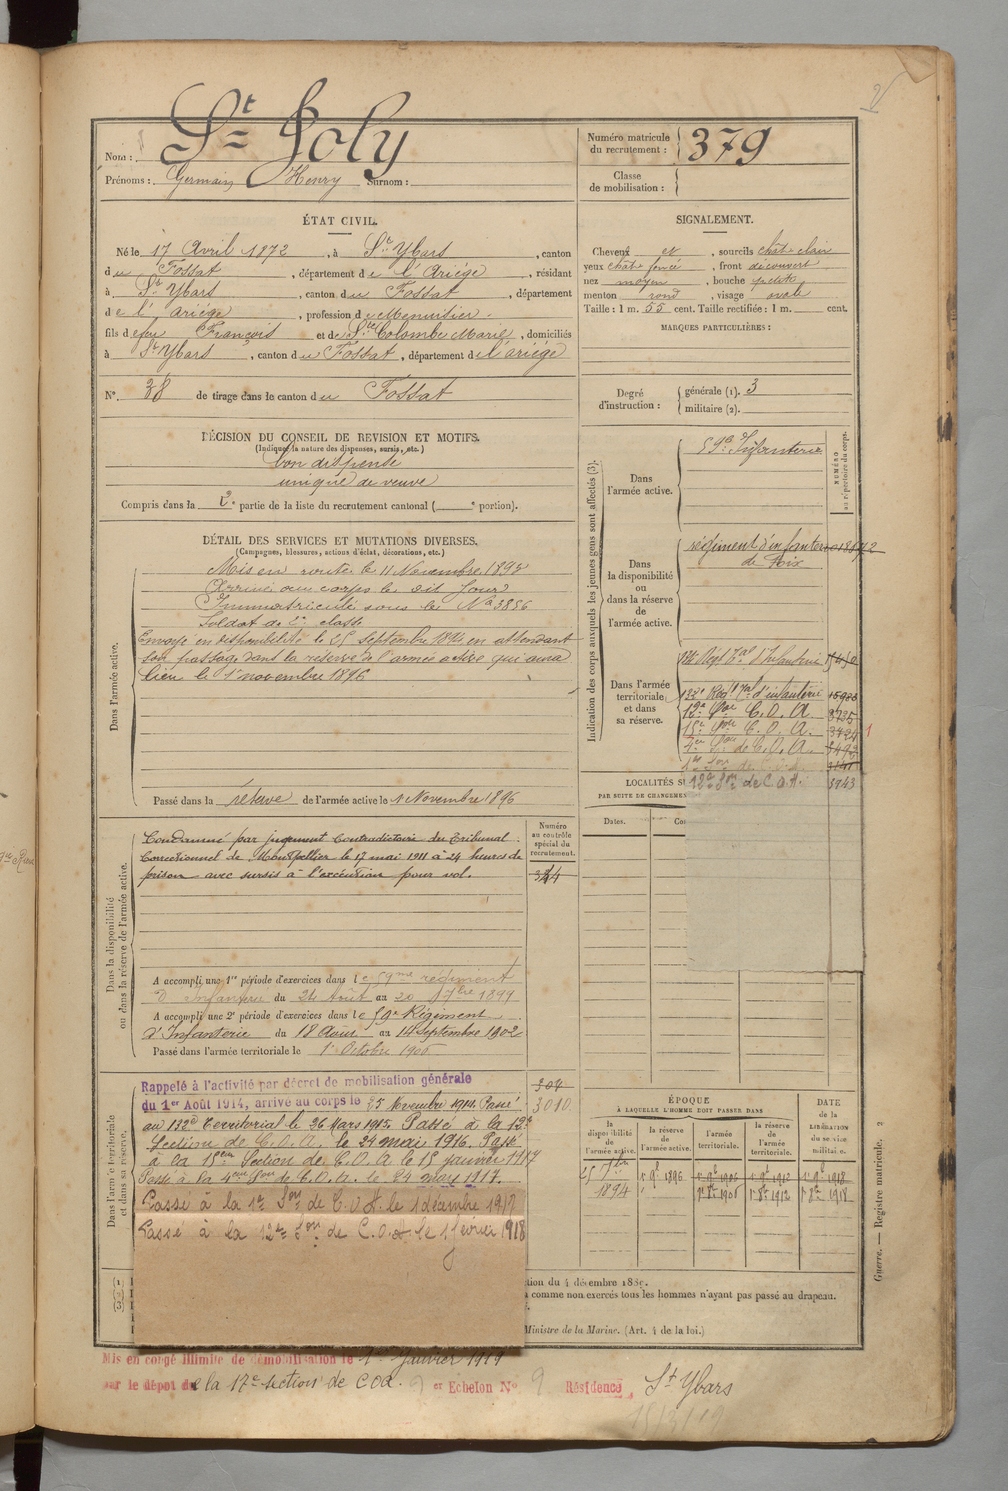 2
Nom : St Joly
Prénoms : Germain Henry Surnom :
Numéro matricule
du recrutement : 379
Classe
de mobilisation :
ÉTAT CIVIL.
Né le 17 Avril 1872, à St Ybars, canton
du Fossat, département de l'Ariège, résidant
à St Ybars, canton du Fossat, département
de l'ariège, profession de Menuisier.
fils de feu François et de Ste Colombe Marie, domiciliés
à St Ybars, canton du Fossat, département de l'ariège
N° 38 de tirage dans le canton du Fossat
SIGNALEMENT.
Cheveux et, sourcils chât. clair
yeux chât. foncé, front découvert
nez moyen, bouche petite
menton rond, visage ovale
Taille : 1 m. 55 cent. Taille rectifiée : 1 m. cent.
MARQUES PARTICULIÈRES :
Degré
d'instruction :
générale (1). 3
militaire (2).
DÉCISION DU CONSEIL DE REVISION ET MOTIFS.
(Indiquer la nature des dispenses, sursis, etc.)
bon dispensé
unique de veuve
Compris dans la 2e partie de la liste du recrutement cantonal ( e portion).
DÉTAIL DES SERVICES ET MUTATIONS DIVERSES.
(Campagnes, blessures, actions d'éclat, décorations, etc.)
Dans l'armée active.
Mis en route le 11 Novembre 1893
Arrivé au corps le dit jour
Immatriculé sous le No 3856
Soldat de 2e classe
Envoyé en disponibilité le 25 septembre 1894 en attendant
son passage dans la réserve de l'armée active qui aura
lieu le 1er novembre 1896
Passé dans la réserve de l'armée active le 1 Novembre 1896
Indication des corps auxquels les jeunes gens sont affectés (3).
NUMÉRO
au répertoire du corps.
Dans
l'armée active.
59e Infanterie
Dans
la disponibilité
ou
dans la réserve
de
l'armée active.
régiment d'infanterie
de Foix
Dans l'armée
territoriale
et dans
sa réserve.
132e Régt Tal d'infanterie
12e Son C.O.A. 3735
15e Son C.O.A.
4e Son de C.O.A. 3492
1re Son de C.O.A.
12e Son de C.O.A. 3943
LOCALITÉS
PAR SUITE DE CHANGEMEN
Dates.
Dans la disponibilité
ou dans la réserve de l'armée active.
Numéro
au contrôle
spécial du
recrutement.
344
Condamné par jugement Contradictoire du Tribunal
Correctionnel de Montpellier le 17 mai 1911 à 24 heures de
prison avec sursis à l'exécution pour vol.
A accompli une 1re période d'exercices dans le 59me régiment
d'Infanterie du 24 Août au 20 7bre 1899
A accompli une 2e période d'exercices dans le 59e Régiment
d'Infanterie du 18 Août au 14 Septembre 1902
Passé dans l'armée territoriale le 1er Octobre 1906
Dans l'armée territoriale
et dans sa réserve.
304
3010
Rappelé à l'activité par décret de mobilisation générale
du 1er Août 1914, arrivé au corps le 25 Novembre 1914. Passé
au 132e Territorial le 26 Mars 1915. Passé à la 12e
Section de C.O.A. le 24 mai 1916. Passé
à la 15em Section de C.O.A le 15 janvier 1917
Passé à la 4em Son de C.O.A. le 24 may 1917.
Passé à la 1re Son de C.O.A. le 1 décembre 1917
Passé à la 12e Son de C.O.A. le 1 février 1918
ÉPOQUE
À LAQUELLE L'HOMME DOIT PASSER DANS
DATE
de la
LIBÉRATION
du service
militaire.
la
disponibilité
de
l'armée active.
la réserve
de
l'armée active.
l'armée
territoriale.
la réserve
de l'armée
territoriale.
25 7bre
1894
1er 9bre 1896
1er 9bre 1906
1er 9bre 1912
1er 9bre 1918
1er 8bre 1906
1er 8bre 1912
1er 8bre 1918
(1)
(2)
(3)
comme non exercés tous les hommes n'ayant pas passé au drapeau.
Ministre de la Marine. (Art. 4 de la loi.)
Guerre. — Registre matricule. 2
Mis en congé illimité de démobilisation le 1er Janvier 1919
par le dépôt de la 17e section de COA. 9 er Echelon No 9 Résidence St Ybars
15/3/19